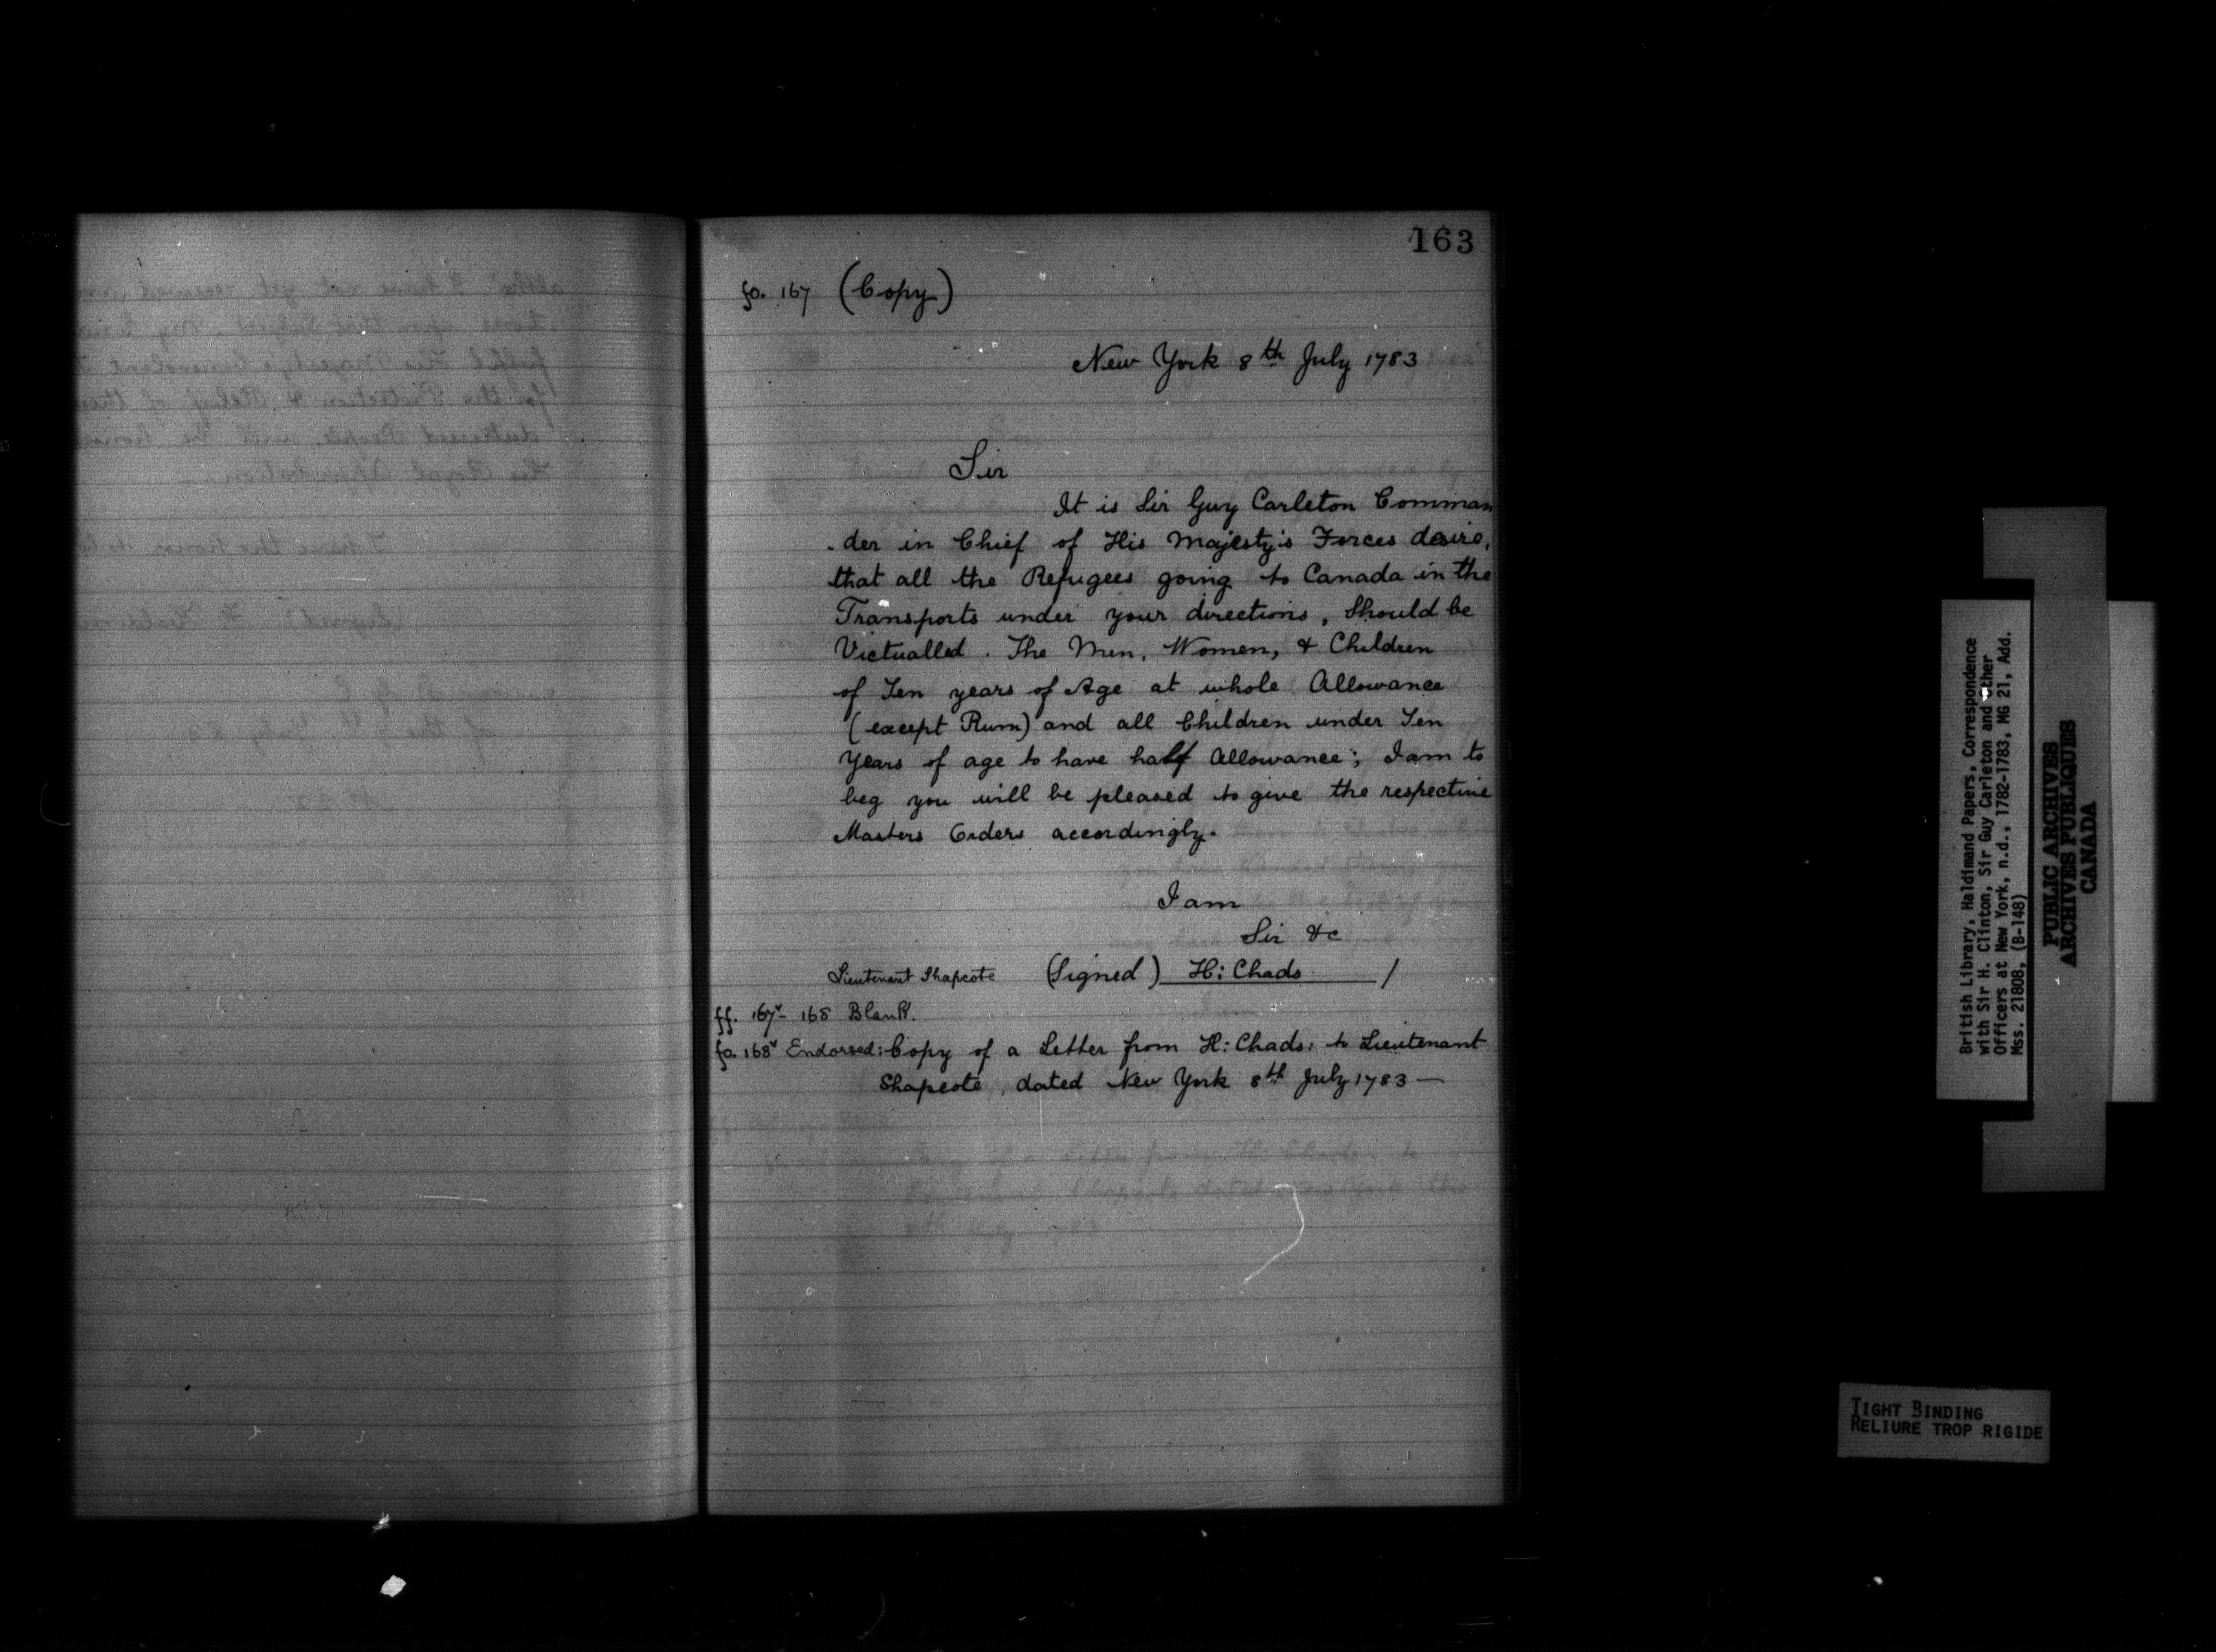 163
fo. 167 (Copy)
New York 8th July 1783
Sir
It is Sir Guy Carleton Comman
-der in Chief of His Majesty's Forces desire,
that all the Refugees going to Canada in the
Transports under your directions, Should be
Victualled. The Men, Women, & Children
of Ten years of Age at whole Allowance
(except Rum) and all Children under Ten
Years of age to have half Allowance; I am to
beg you will be pleased to give the respective
Masters Orders accordingly.
I am
Sir &c
Lieutenant Shapcote (Signed) H: Chads /
ff. 167v - 168 Blank.
fo. 168v Endorsed: Copy of a Letter from H: Chads: to Lieutenant
Shapcote, dated New York 8th July 1783 —
British Library, Haldimand Papers, Correspondence
with Sir H. Clinton, Sir Guy Carleton and other
Officers at New York, n.d., 1782-1783, MG 21, Add.
Mss. 21808, (B-148)
PUBLIC ARCHIVES
ARCHIVES PUBLIQUES
CANADA
TIGHT BINDING
RELIURE TROP RIGIDE